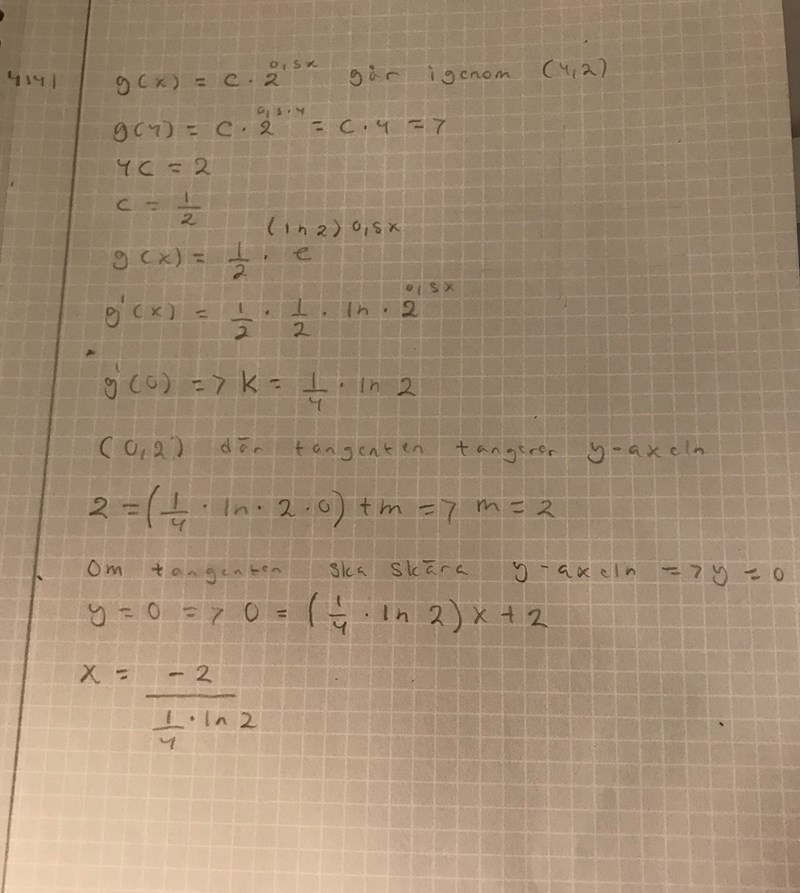 4141 g(x) = C · 2^0,5x går igenom (4,2)
g(4) = C · 2^0,5·4 = C · 4 =>
4C = 2
C = 1/2
g(x) = 1/2 · e^(ln2)0,5x
g'(x) = 1/2 · 1/2 · ln · 2^0,5x
g'(0) => K = 1/4 · ln 2
(0,2) där tangenten tangerar y-axeln
2 = (1/4 · ln · 2 · 0) + m => m = 2
Om tangenten ska skära y-axeln => y = 0
y = 0 => 0 = (1/4 · ln 2) x + 2
x = -2 / (1/4 · ln 2)